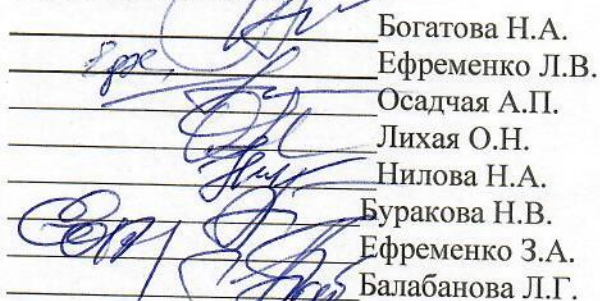 Богатова Н.А.
Ефременко Л.В.
Осадчая А.П.
Лихая О.Н.
Нилова Н.А.
Буракова Н.В.
Ефременко З.А.
Балабанова Л.Г.